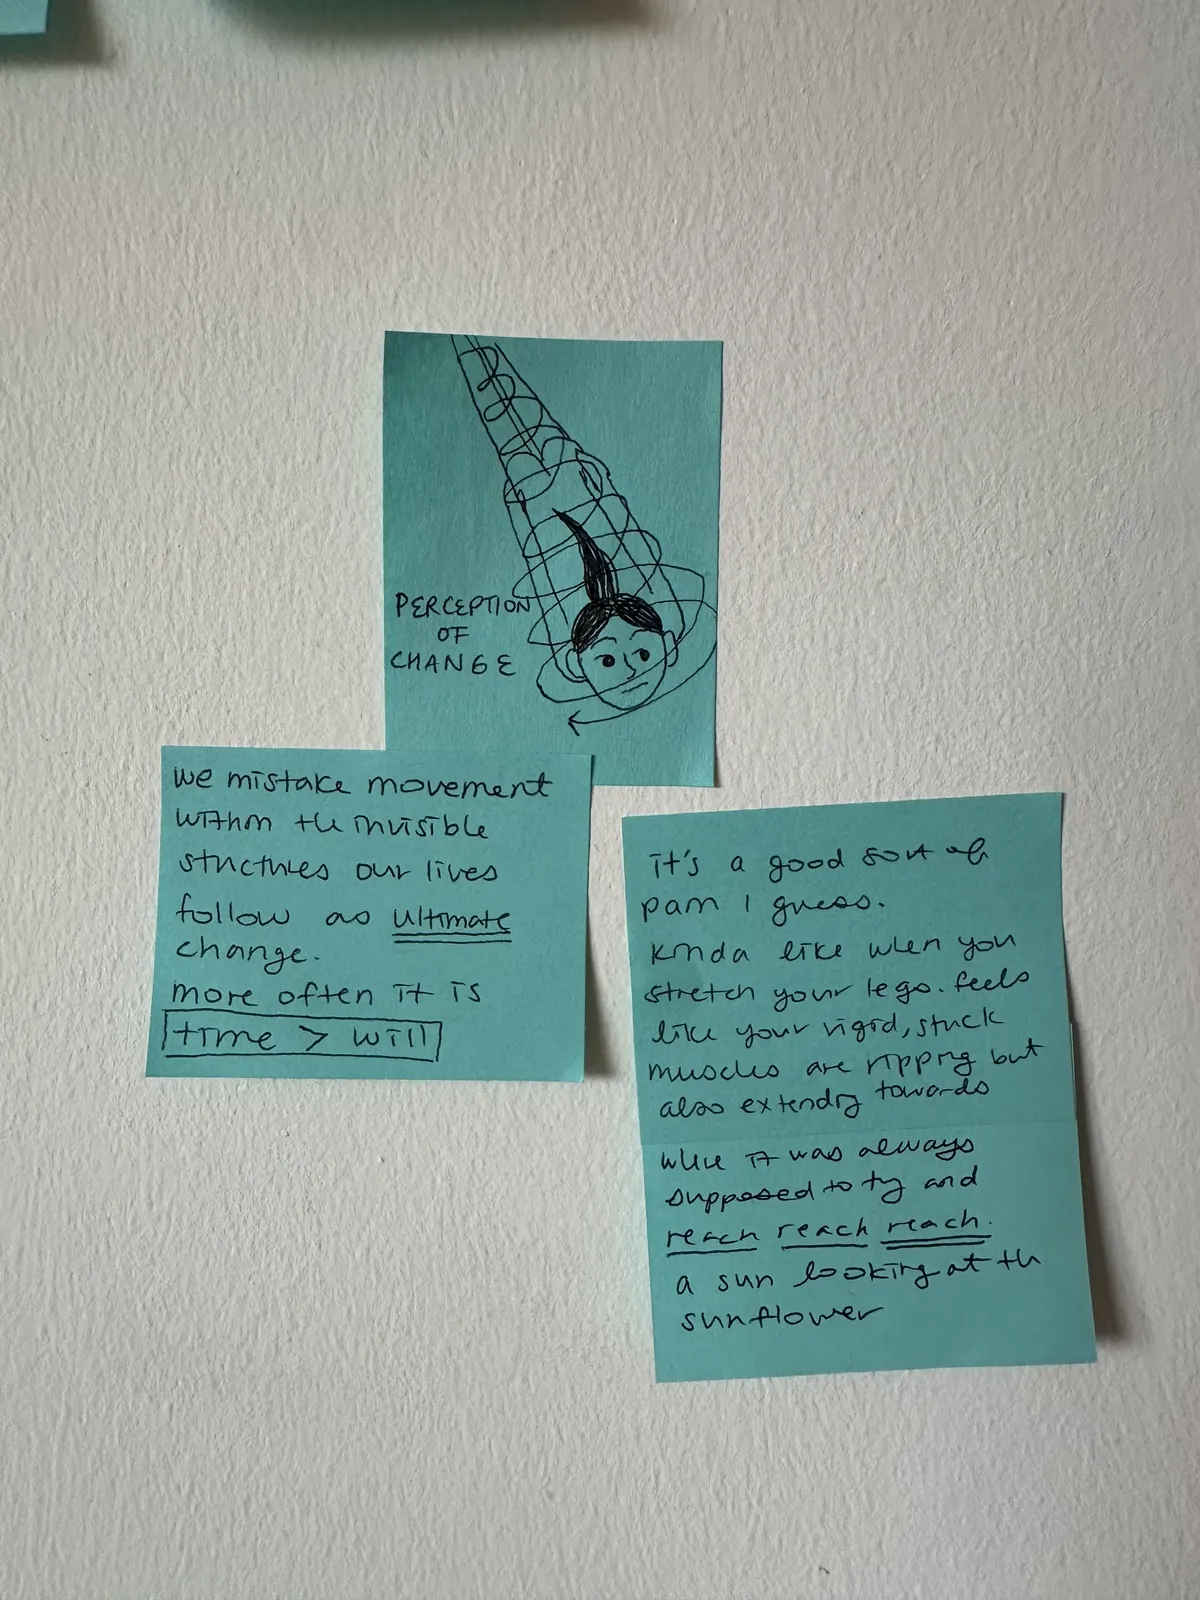 PERCEPTION
OF
CHANGE
we mistake movement
within the invisible
structures our lives
follow as ultimate
change.
more often it is
time > will
it's a good sort of
pain I guess.
kinda like when you
stretch your legs. feels
like your rigid, stuck
muscles are ripping but
also extending towards
where it was always
supposed to try and
reach reach reach.
a sun looking at the
sunflower